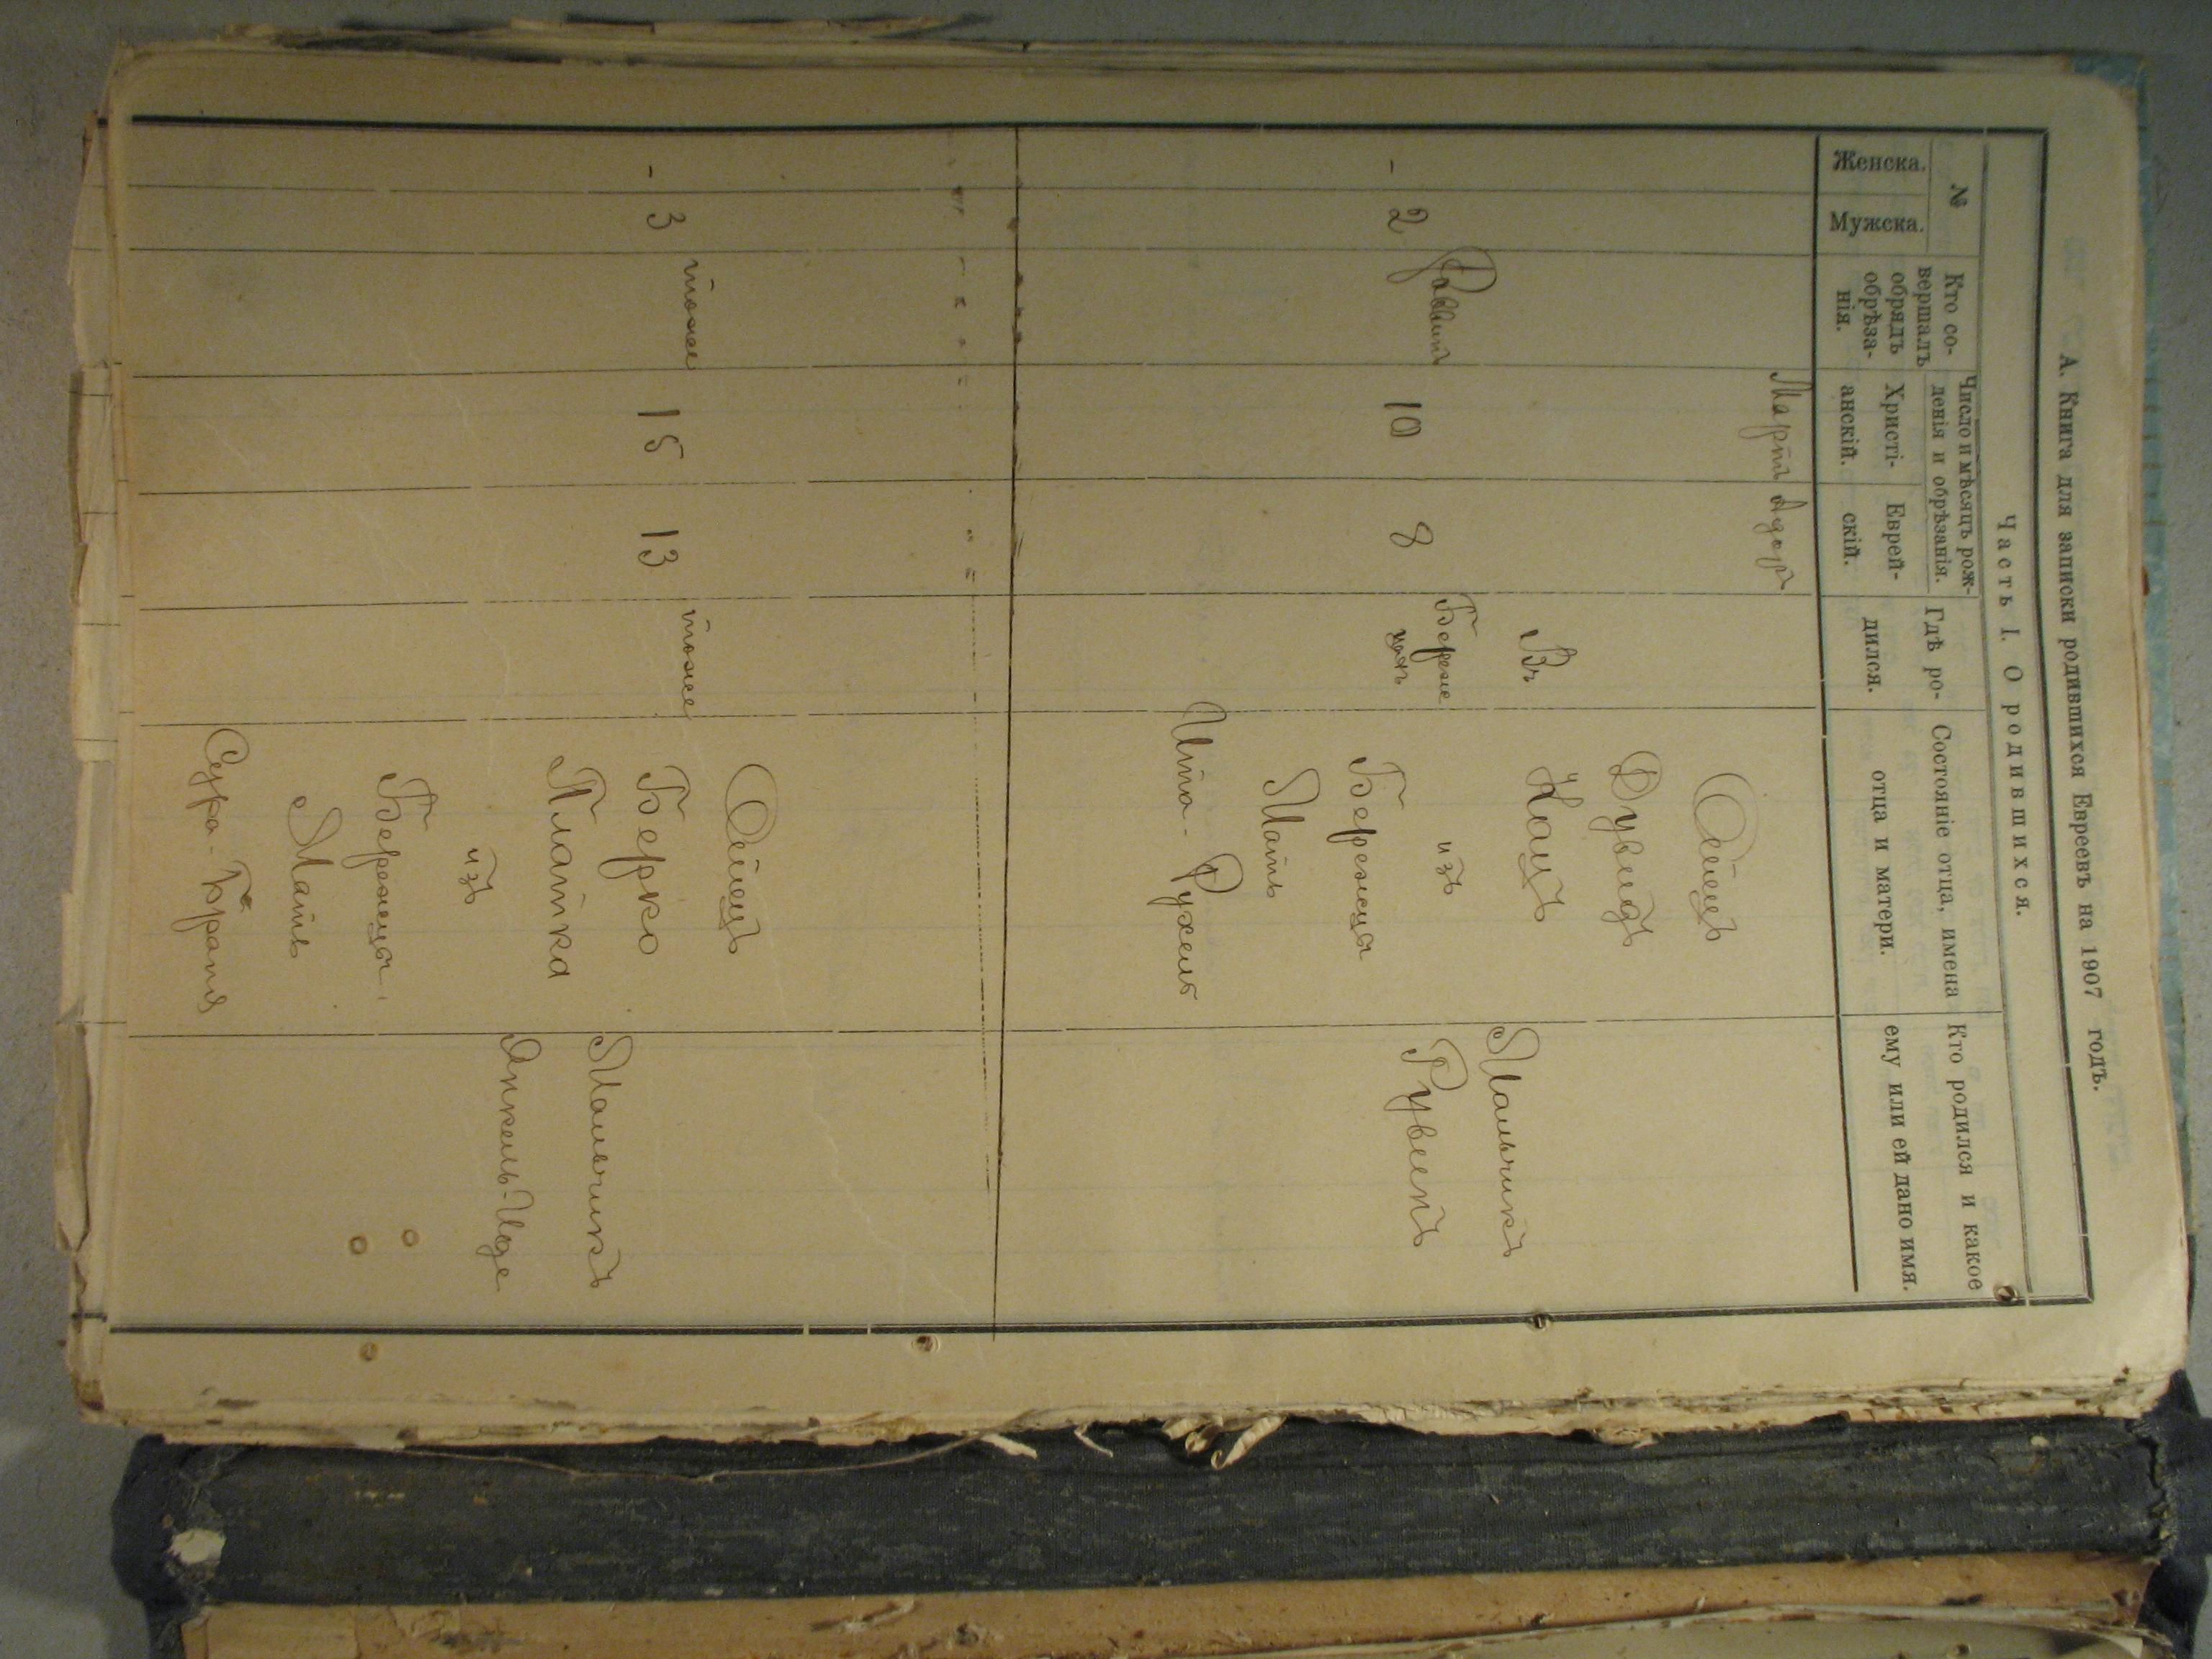 А. Книга для записки родившихся Евреевъ на 1907 годъ.
Часть I. О родившихся.
№
Женска.
Мужска.
Кто со-
вершалъ
обрядъ
обрѣза-
нія.
Число и мѣсяцъ рож-
денія и обрѣзанія.
Христі-
анскій.
Еврей-
скій.
Гдѣ ро-
дился.
Состояніе отца, имена
отца и матери.
Кто родился и какое
ему или ей дано имя.
Мартъ Адаръ
-
2
Раввинъ
10
8
Въ
Береж
цахъ
Отецъ
Дувидъ
Кацъ
изъ
Бережцы
Мать
Ита-Рухель
Мальчикъ
Рувинъ
-
3
тоже
15
13
тоже
Отецъ
Берко
Платка
изъ
Бережцы
Мать
Сура-
Мальчикъ
Янкель-Иде